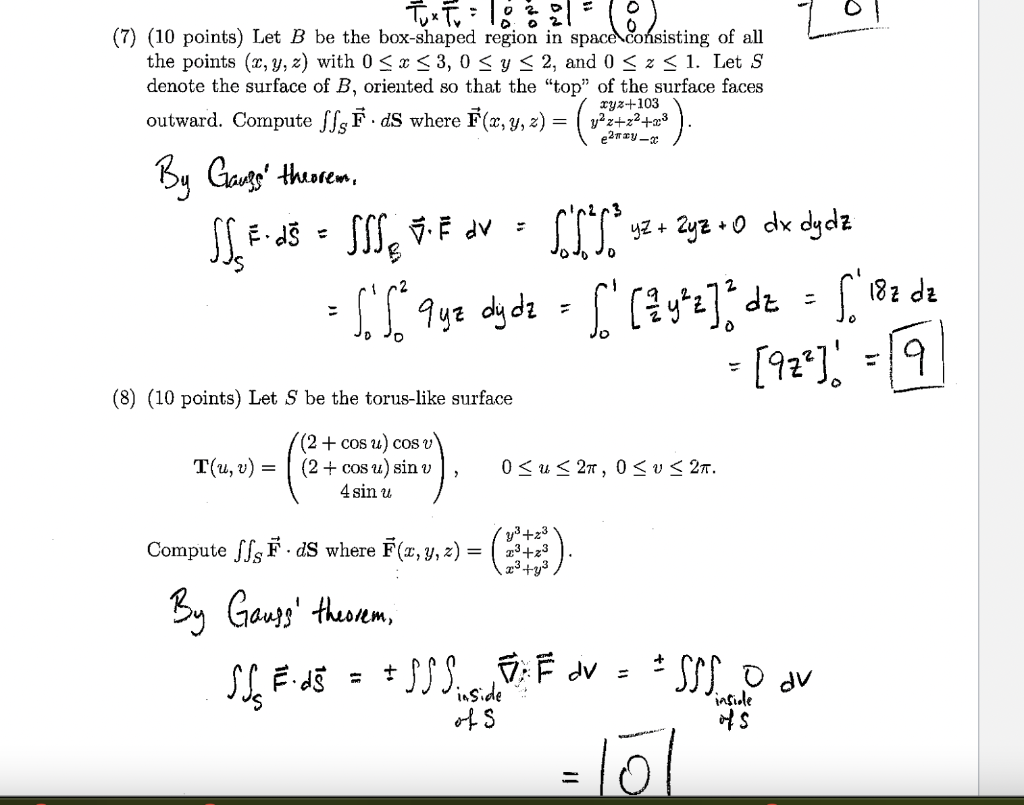 T⃗ᵤ × T⃗ᵥ = |0 2 0; 0 0 2| = (0; 0)
0
(7) (10 points) Let B be the box-shaped region in space consisting of all
the points (x, y, z) with 0 ≤ x ≤ 3, 0 ≤ y ≤ 2, and 0 ≤ z ≤ 1. Let S
denote the surface of B, oriented so that the “top” of the surface faces
outward. Compute ∬_S F⃗ · dS where F⃗(x, y, z) = (xyz+103; y²z+z²+x³; e^{2πxy}−x).
By Gauss' theorem,
∬_S F⃗·dS⃗ = ∭_B ∇⃗·F⃗ dV = ∫₀¹∫₀²∫₀³ yz + 2yz + 0 dx dy dz
= ∫₀¹∫₀² 9yz dy dz = ∫₀¹ [9/2 y²z]₀² dz = ∫₀¹ 18z dz
= [9z²]₀¹ = 9
(8) (10 points) Let S be the torus-like surface
T(u, v) = ((2 + cos u) cos v; (2 + cos u) sin v; 4 sin u), 0 ≤ u ≤ 2π, 0 ≤ v ≤ 2π.
Compute ∬_S F⃗ · dS where F⃗(x, y, z) = (y³+z³; x³+z³; x³+y³).
By Gauss' theorem,
∬_S F⃗·dS⃗ = ± ∭_{inside of S} ∇⃗·F⃗ dV = ± ∭_{inside of S} 0 dV
= 0